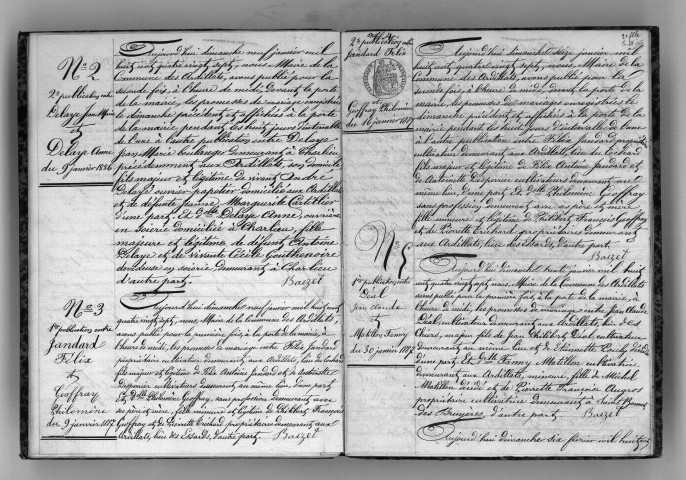 No 2
2e publication entre
Delaye Jean Marie
et
Delaye Anne
du 9 janvier 1886
Aujourd'hui dimanche neuf janvier mil
huit cent quatre vingt sept, nous Maire de la
Commune des Ardillats, avons publié pour la
seconde fois, à l'heure de midi devant la porte
de la mairie, les promesses de mariage
le dimanche précédent et affichées à la porte
de la mairie pendant les huit jours d'intervalle
de l'une à l'autre publication entre Delaye
Jean Marie demeurant à Charlieu
précédemment aux Ardillats son domicile
fils majeur et légitime de vivant André
Delaye ouvrier papetier domicilié aux Ardillats
et de défunte Jeanne Marguerite
d'une part. Et Dlle Delaye Anne, ouvrière
en soierie domiciliée à Charlieu, fille
majeure et légitime de défunt Antoine
Delaye et de vivante Cécile Gouthenoire
dévideuse en soierie demeurant à Charlieu
d'autre part. Baizet
No 3
1re publication entre
Jandard
Félix
et
Geoffray
Philomène
du 9 janvier 1887
Aujourd'hui dimanche neuf janvier mil huit cent
quatre vingt sept, nous Maire de la Commune des Ardillats,
avons publié pour la première fois, à la porte de la mairie, à
l'heure de midi, les promesses de mariage entre Félix Jandard
propriétaire cultivateur demeurant aux Ardillats, lieu de
fils majeur et légitime de Félix Antoine Jandard et de Antoinette
Desperrier cultivateurs demeurant au même lieu, d'une part
Et Dlle Philomène Geoffray, sans profession demeurant avec
ses père et mère, fille mineure et légitime de Philibert François
Geoffray et de Pierrette Tréchard propriétaires demeurant aux
Ardillats, lieu des Essards, d'autre part. Baizet
No 4
2e publication entre
Jandard Félix
et
Geoffray Philomène
du 16 janvier 1887
Aujourd'hui dimanche seize janvier mil
huit cent quatre vingt sept, nous Maire de la
Commune des Ardillats, avons publié pour la
seconde fois, à l'heure de midi, devant la porte de la
mairie, les promesses de mariage enregistrées le
dimanche précédent et affichées à la porte de la
mairie pendant les huit jours d'intervalle de l'une
à l'autre publication entre Félix Jandard propriétaire
cultivateur demeurant aux Ardillats, lieu de
fils majeur et légitime de Félix Antoine Jandard et
de Antoinette Desperrier cultivateurs demeurant au
même lieu, d'une part. Et Dlle Philomène Geoffray
sans profession demeurant avec ses père et mère
fille mineure et légitime de Philibert François Geoffray
et de Pierrette Tréchard propriétaires demeurant
aux Ardillats, lieu des Essards, d'autre part.
Baizet
No 5
1re publication entre
Déal
Jean Claude
et
Matillon Fanny
du 30 janvier 1887
Aujourd'hui dimanche trente janvier mil huit
cent quatre vingt sept, nous Maire de la Commune des Ardillats
avons publié pour la première fois, à la porte de la mairie, à
l'heure de midi, les promesses de mariage entre Jean Claude
Déal cultivateur demeurant aux Ardillats, lieu des
majeur fils de Jean Philibert Déal cultivateur
demeurant au même lieu et de Etiennette
d'une part Et Dlle Fanny Matillon cultivatrice
demeurant aux Ardillats, mineure, fille de Michel
Matillon décédé et de Pierrette Françoise Augros
propriétaire cultivatrice demeurant à Saint Bonnet
des Bruyères, d'autre part Baizet
Aujourd'hui dimanche six février mil huit cent